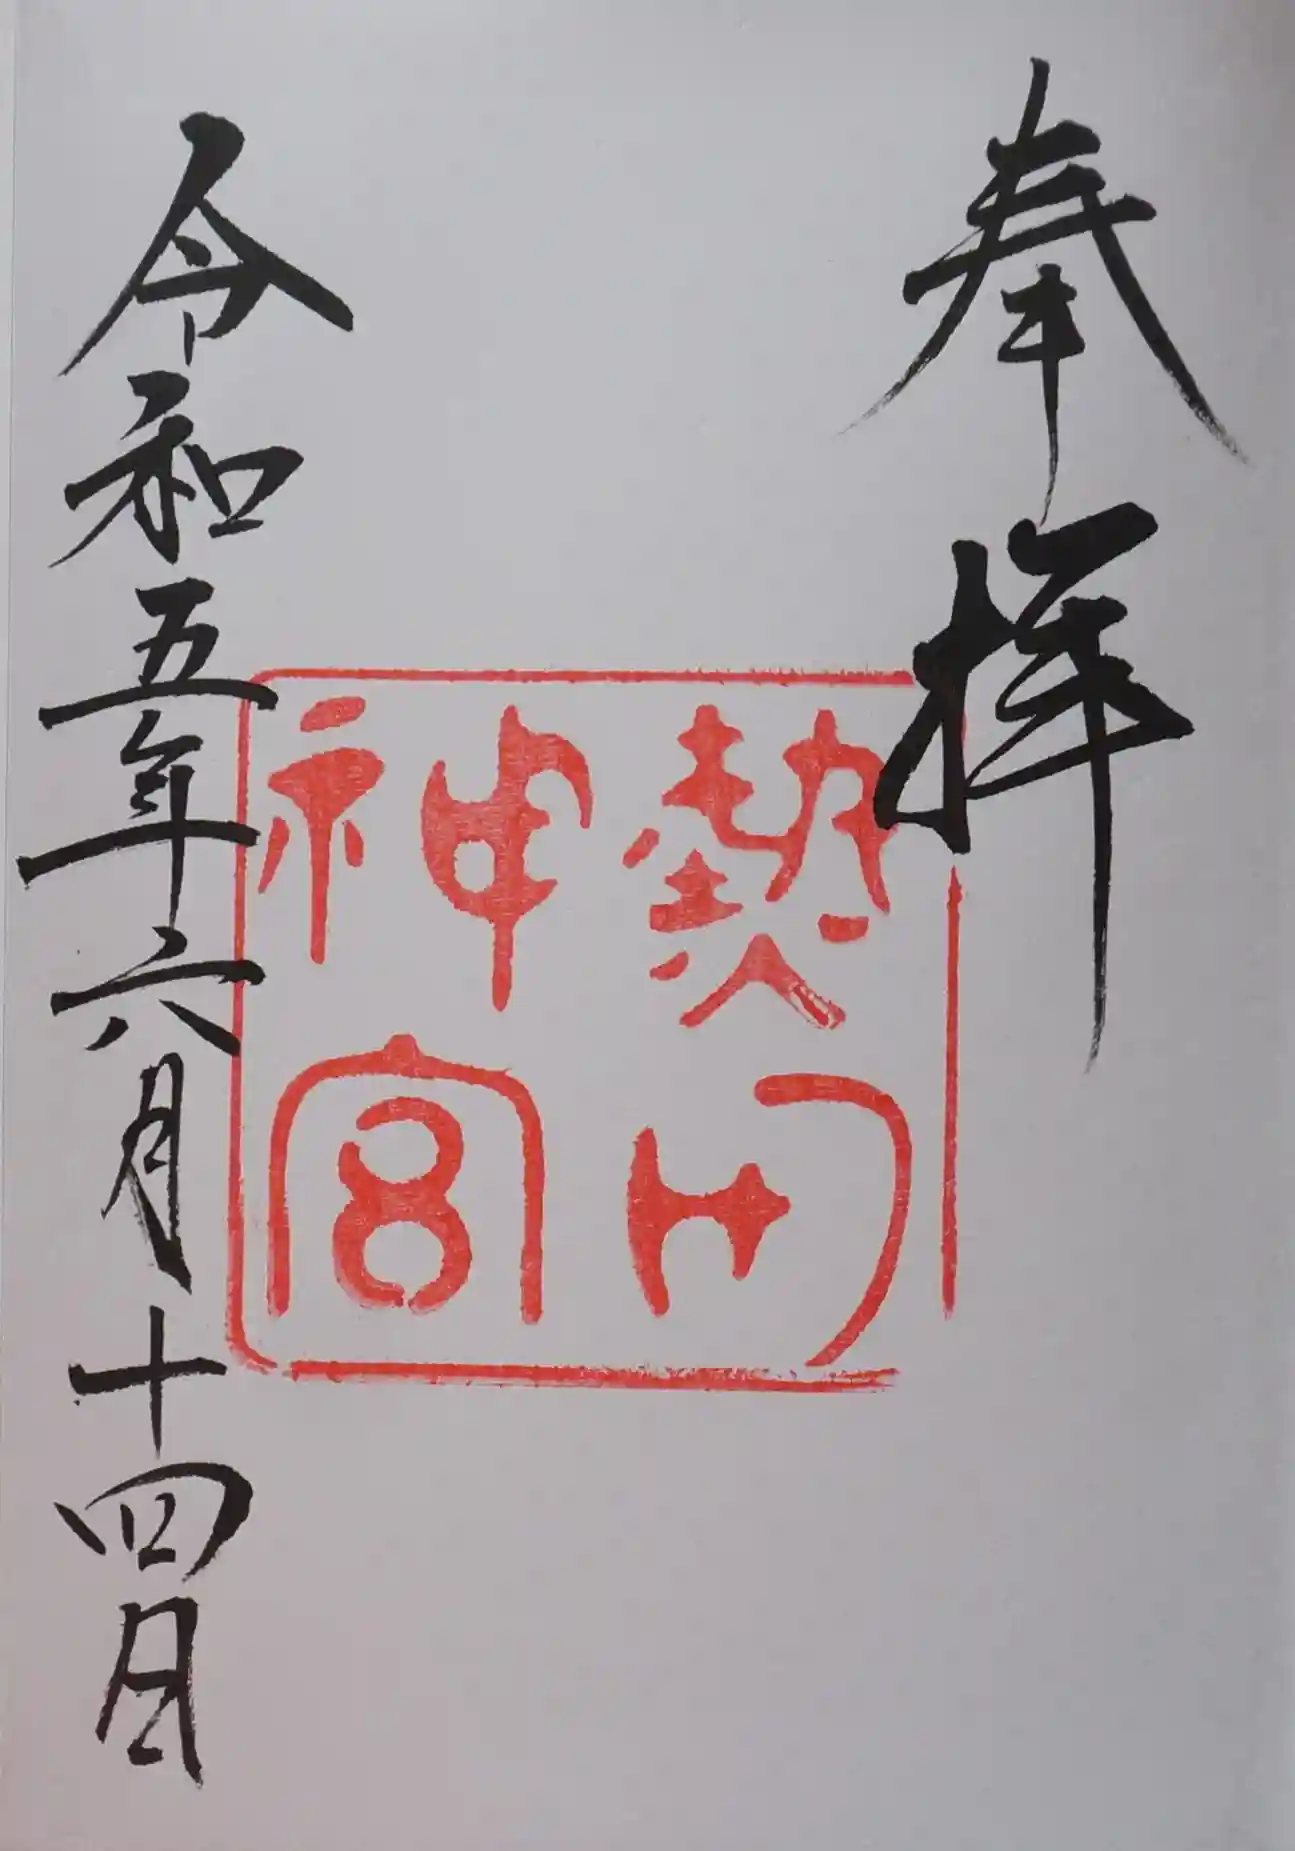 奉拝
熱田
神宮
令和五年六月十四日